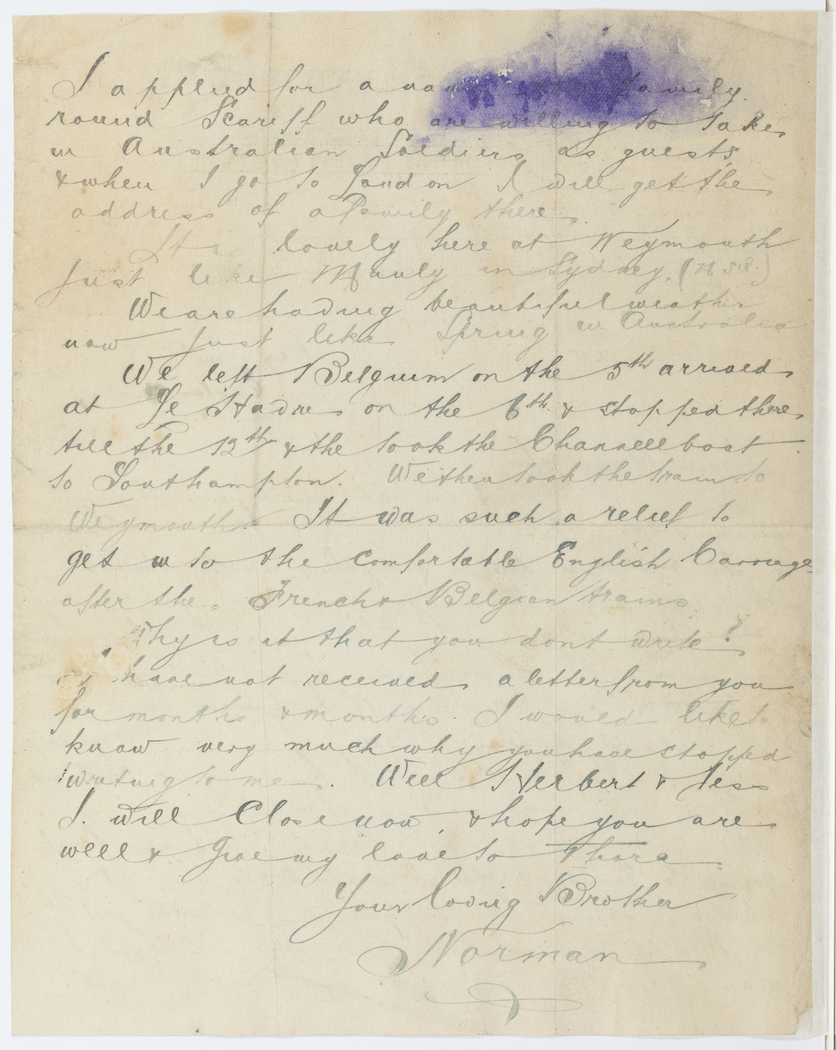 I applied for a family
round Scariff who are willing to take
in Australian Soldiers as guests
& when I go to London I will get the
address of a Family there.
It is lovely here at Weymouth
just like Manly in Sydney. (N.S.W.)
We are having beautiful weather
now just like Spring in Australia
We left Belgium on the 5th arrived
at Le Havre on the 6th & stopped there
till the 12th & the took the Channell boat
to Southampton. We then took the train to
Weymouth. It was such a relief to
get in to the comfortable English Carriage
after the French & Belgian trains
Why is it that you dont write?
I have not received a letter from you
for months & months. I would like to
know very much why you have stopped
writing to me. Well Herbert & Jess
I will close now, & hope you are
well & give my love to Thora
Your loving Brother
Norman